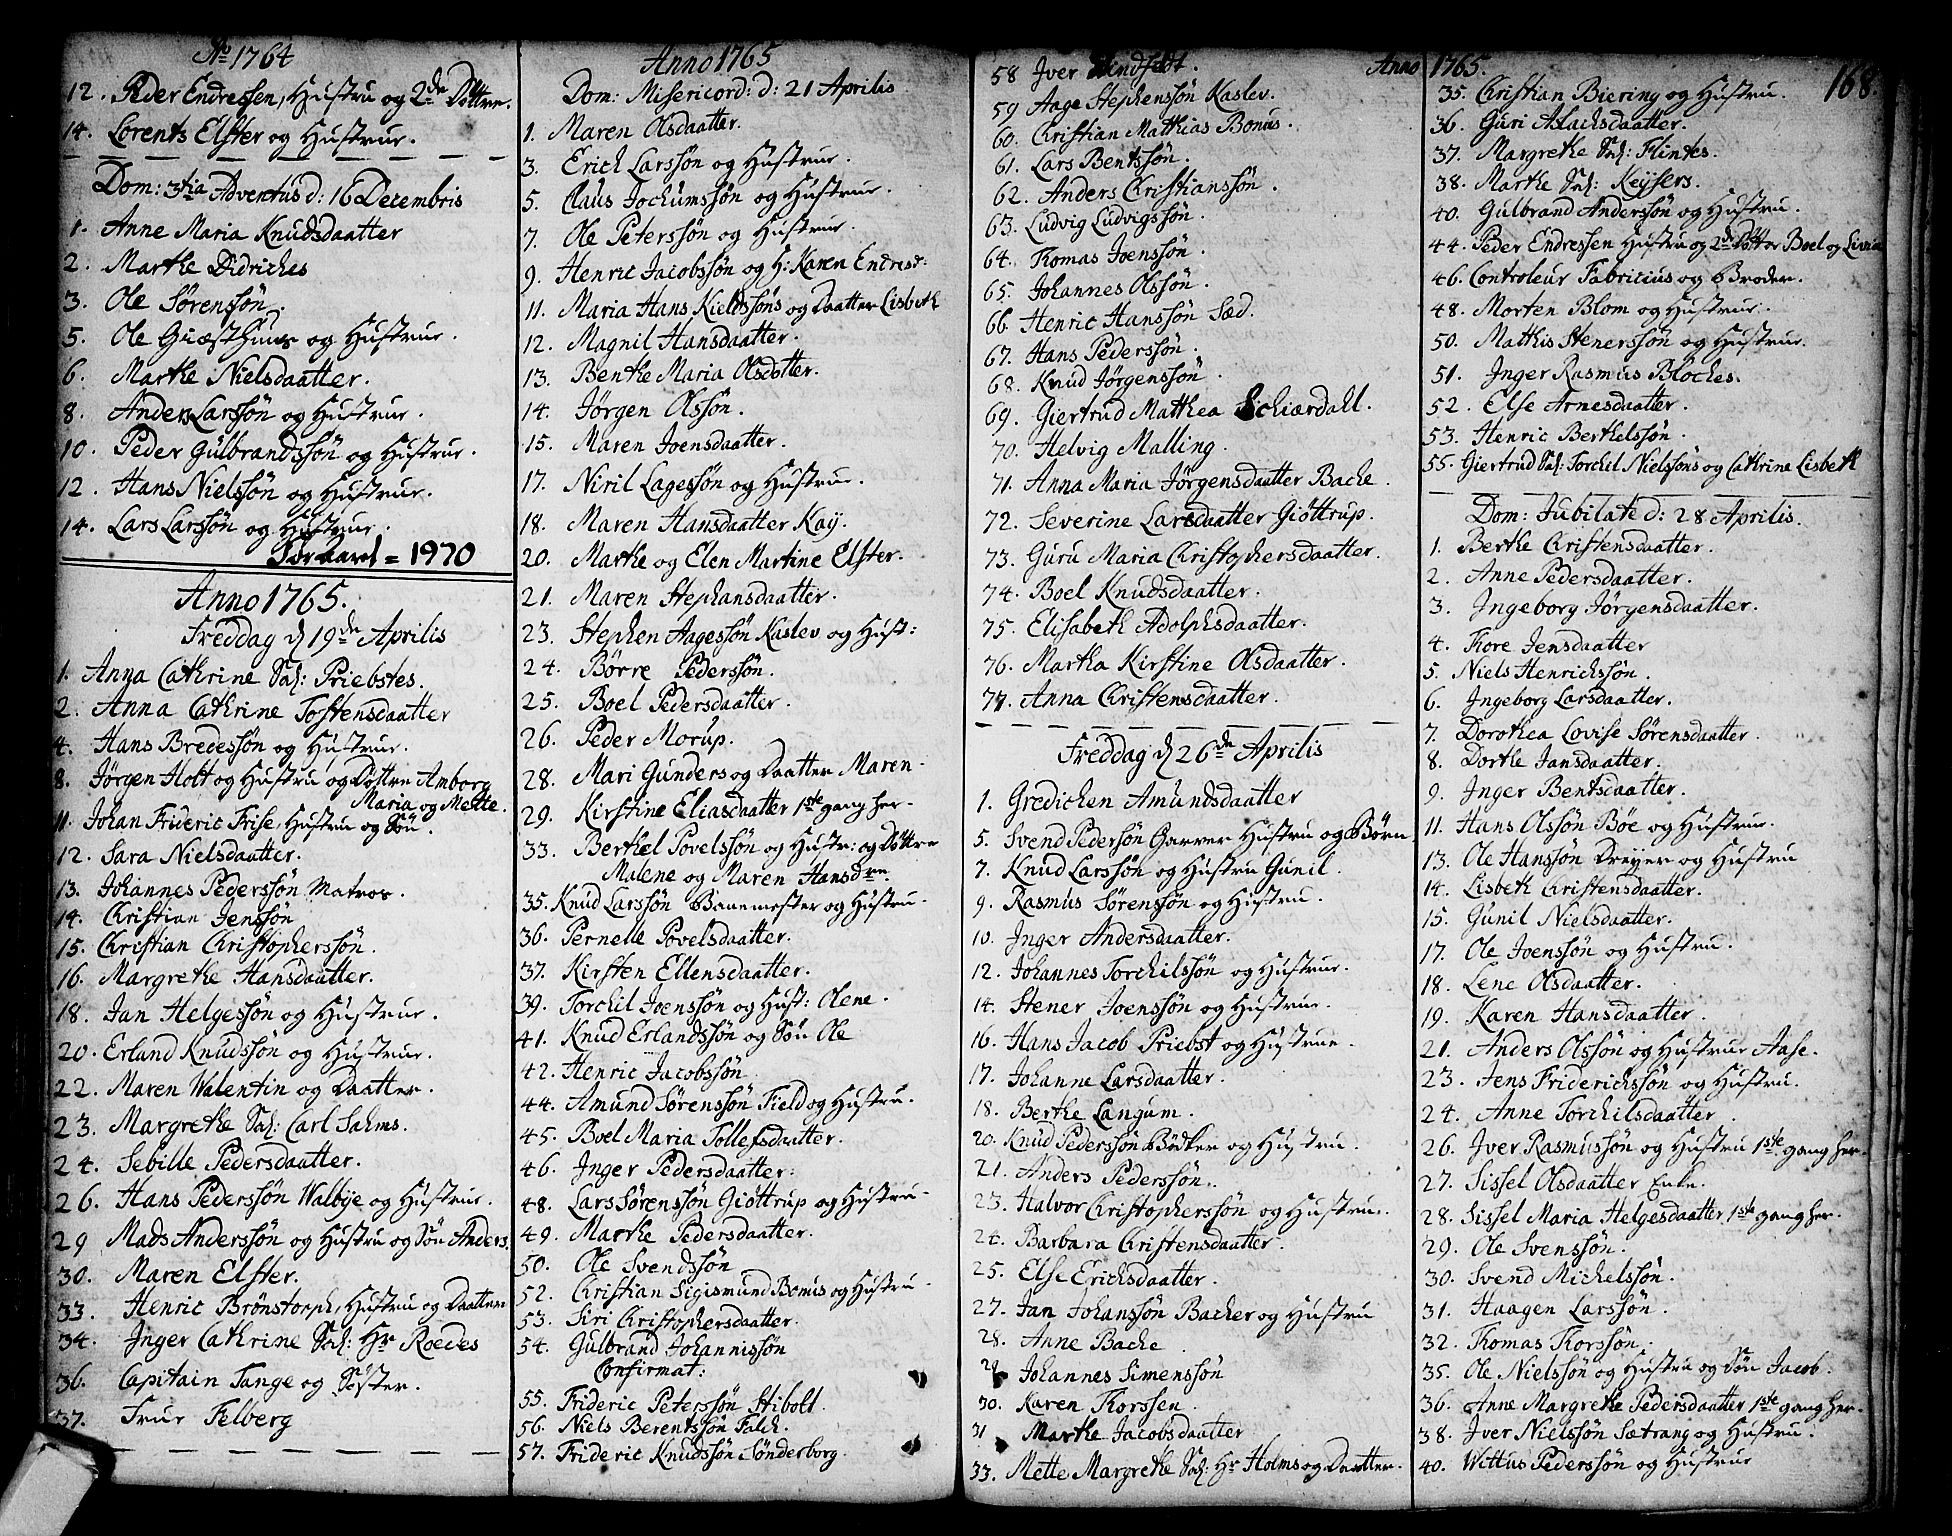 Aõ 1764
12. Peder Endressen, Hustru og 2de Döttre.
14. Lorents Elster og Hustrue.
Dom: 3tia Adventus d: 16 Decembris
1. Anne Maria Knudsdaatter
2. Marthe Didriches
3. Ole Sörensön.
5. Ole Giæsthuus og Hustrue.
6. Marthe Nielsdaatter.
8. Anders Larssön og Hustrue.
10. Peder Gulbrandssön og Hustrue.
12. Hans Nielssön og Hustrue.
14. Lars Larssön og Hustrue.
= 1970
Anno 1765.
Freddag d 19de Aprilis
1. Anna Cathrine Sal: Priebstes.
2. Anna Cathrine Tostensdaatter
4. Hans Bredessön og Hustrue.
8. Jörgen Holt og Hustru og Döttre Amborg
Maria og Mette.
11. Johan Frideric Frise, Hustru og Sön.
12. Sara Nielsdaatter.
13. Johannes Pederssön Matros.
14. Christian Jenssön
15. Christian Christopherssön.
16. Margrethe Hansdaatter.
18. Jan Helgessön og Hustrue.
20. Erland Knudssön og Hustrue.
22. Maren Valentin og Daatter.
23. Margrethe Sal: Carl Sahms.
24. Sebille Pedersdaatter.
26. Hans Pederssön Walbye og Hustrue.
29 Mads Anderssön og Hustru og Sön Anders.
30. Maren Elster.
33. Henric Brönstorph, Hustru og Daatter
34. Inger Cathrine Sal: Hr Roedes
36. Capitain Tange og Söster.
37. Frue Felberg
Anno 1765
Dom: Misericord: d: 21 Aprilis
1. Maren Olsdaatter.
3. Erich Larssön og Hustrue.
5. Claus Jochumssön og Hustrue.
7. Ole Peterssön og Hustrue.
9. Henric Jacobssön og H: Karen Endresd:
11. Maria Hans Kieldssöns og Daatter Lisbeth
12. Magnil Hansdaatter.
13. Benthe Maria Olsdotter.
14. Jörgen Olssön.
15. Maren Joensdaatter.
17. Niril Lagessön og Hustrue.
18. Maren Hansdaatter Kaÿ.
20. Marthe og Elen Martine Elster.
21. Maren Stephansdaatter.
23. Stephen Aagessön Kaslev og Hust:
24. Börre Pederssön.
25. Boel Pedersdaatter.
26. Peder Morup.
28. Mari Gunders og Daatter Maren.
29. Kirstine Eliasdaatter 1ste gang her.
33. Berthel Povelssön og Hustr: og Döttre
Malene og Maren Hansdtre
35. Knud Larssön Banemester og Hustru.
36. Pernelle Povelsdaatter.
37. Kirsten Ellensdaatter.
39. Torchil Joenssön og Hust: Olene.
41. Knud Erlandssön og Sön Ole
42. Henric Jacobssön
44. Amund Sörenssön Field og Hustru.
45. Boel Maria Tollefsdaatter.
46. Inger Pedersdaatter:
48. Lars Sörenssön Giöttrup og Hustru.
49. Marthe Pedersdaatter.
50. Ole Svendssön
52. Christian Sigismund Bomis og Hustru
53. Siri Christophersdaatter.
54. Gulbrand Johannissön
Confirmat:
55. Frideric Peterssön Stibolt.
56. Niels Berentssön Falch.
57. Frideric Knudssön Sönderborg.
58 Iver Lindstedt.
59 Aage Stephenssön Kaslev.
60. Christian Matthias Bonus.
61. Lars Bentssön.
62. Anders Christianssön.
63. Ludvig Ludvigssön.
64. Thomas Joenssön.
65. Johannes Olssön.
66 Henric Hanssön Sæd.
67. Hans Pederssön.
68. Knud Jörgenssön
69. Giertrud Matthea Schiærdahl.
70. Helvig Malling.
71. Anna Maria Jörgensdaatter Bache.
72. Severine Larsdaatter Giöttrup.
73. Guru Maria Christophersdaatter.
74. Boel Knudsdaatter.
75. Elisabeth Adolphsdaatter.
76. Martha Kirstine Olsdaatter.
77. Anna Christensdaatter.
Freddag d 26de Aprilis
1. Gredichen Amundsdaatter
5. Svend Pedersön Garver Hustru og Börn
7. Knud Larssön og Hustru Gunil.
9. Rasmus Sörenssön og Hustru.
10. Inger Andersdaatter.
12. Johannes Torchilssön og Hustrue.
14. Stener Joenssön og Hustrue.
16. Hans Jacob Priebst og Hustrue.
17. Johanne Larsdaatter.
18. Berthe Langum.
20. Knud Pederssön Bödker og Hustru.
21. Anders Pederssön.
23. Halvor Christopherssön og Hustru.
24. Barbara Christensdaatter.
25. Else Erichsdaatter.
27. Jan Johanssön Bacher og Hustru
28. Anne Bache
29. Johannes Simenssön
30. Karen Thorssen.
31 Marthe Jacobsdaatter
33. Mette Margrethe Sal: Hr Holms og Daatter.
Anno 1765.
168.
35. Christian Biering og Hustru.
36. Guri Aslachsdaatter.
37. Margrethe Sal: Flintes.
38. Marthe Sal: Keysers.
40. Gulbrand Anderssön og Hustru.
44. Peder Endressen Hustru og 2de Döttre Boel og Livia
46. Controleur Fabricius og Broder.
48. Morten Blom og Hustrue.
50. Mathis Stenerssön og Hustrue.
51. Inger Rasmus Bloches.
52. Else Arnesdaatter.
53. Henric Berthelssön.
55. Giertrud Sal: Torchil Nielssöns og Cathrine Lisbeth
Dom: Jubilate d: 28 Aprilis.
1. Berthe Christensdaatter.
2. Anne Pedersdaatter.
3. Ingeborg Jörgensdaatter.
4. Thore Jensdaatter
5. Niels Henrichssön.
6. Ingeborg Larsdaatter.
7. Dorothea Lovise Sörensdaatter.
8. Dorthe Jansdaatter.
9. Inger Bentsdaatter.
11. Hans Olssön Böe og Hustrue.
13. Ole Hanssön Dreyer og Hustru
14. Lisbeth Christensdaatter.
15. Gunil Nielsdaatter.
17. Ole Joenssön og Hustru.
18. Lene Olsdaatter.
19. Karen Hansdaatter.
21. Anders Olssön og Hustrue Aase.
23. Jens Friderichssön og Hustru.
24. Anne Torchilsdaatter
26. Iver Rasmussön og Hustru 1ste gang her.
27. Sissel Olsdaatter Enke.
28. Sissel Maria Helgesdaatter 1ste gang her.
29. Ole Svenssön.
30. Svend Michelssön.
31. Haagen Larssön.
32. Thomas Thorssön.
35. Ole Nielssön og Hustru og Sön Jacob.
36. Anne Margrethe Pedersdaatter 1ste gang her.
38. Iver Nielssön Sætrang og Hustru.
40. Wittus Pederssön og Hustrue